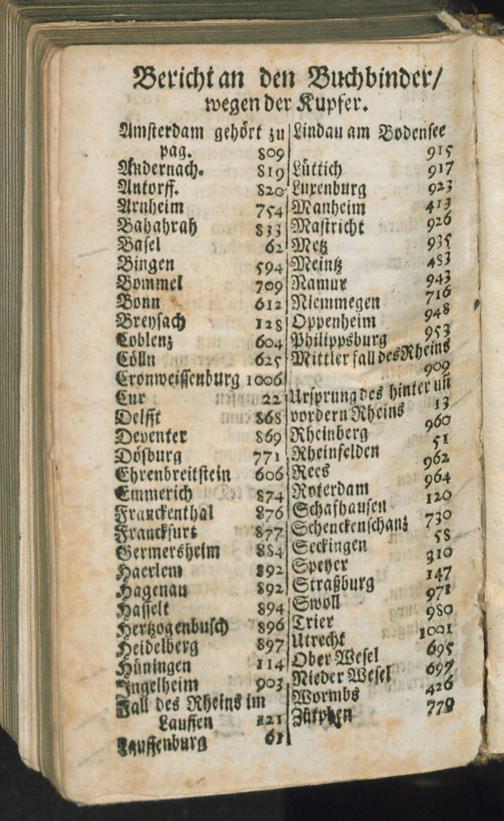 Bericht an den Buchbinder/
wegen der Kupfer.
Amsterdam gehört zu
pag. 809
Andernach. 819
Antorff. 820
Arnheim 754
Bahahrah 833
Basel 62
Bingen 594
Bommel 709
Bonn 612
Breysach 128
Coblenz 604
Cölln 625
Cronweissenburg 1006
Cur 22
Delfft 868
Deventer 869
Dösburg 771
Ehrenbreitstein 606
Emmerich 874
Franckenthal 876
Franckfurt 877
Germersheim 884
Haerlem 892
Hagenau 892
Hasselt 894
Hertzogenbusch 896
Heidelberg 897
Hüningen 114
Ingelheim 903
Fall des Rheins im
Lauffen 121
Lauffenburg 61
Lindau am Bodensee
915
Lüttich 917
Luxenburg 923
Manheim 413
Mastricht 926
Metz 935
Meintz 483
Namur 943
Niemmegen 716
Oppenheim 948
Philippsburg 953
Mittler fall des Rheins
909
Ursprung des hinter uñ
vordern Rheins 13
Rheinberg 960
Rheinfelden 51
Rees 962
Roterdam 964
Schafhausen 120
Schenckenschanz 730
Seckingen 58
Speyer 310
Straßburg 147
Swoll 971
Trier 980
Utrecht 1001
Ober Wesel 695
Nieder Wesel 697
Wormbs 426
Zütphen 779